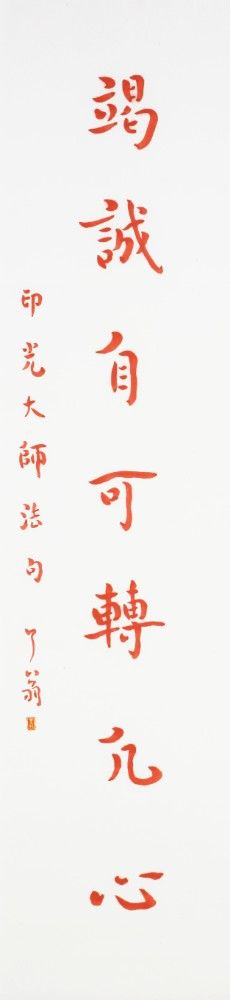 竭誠自可轉凡心
印光大師法句 了翁